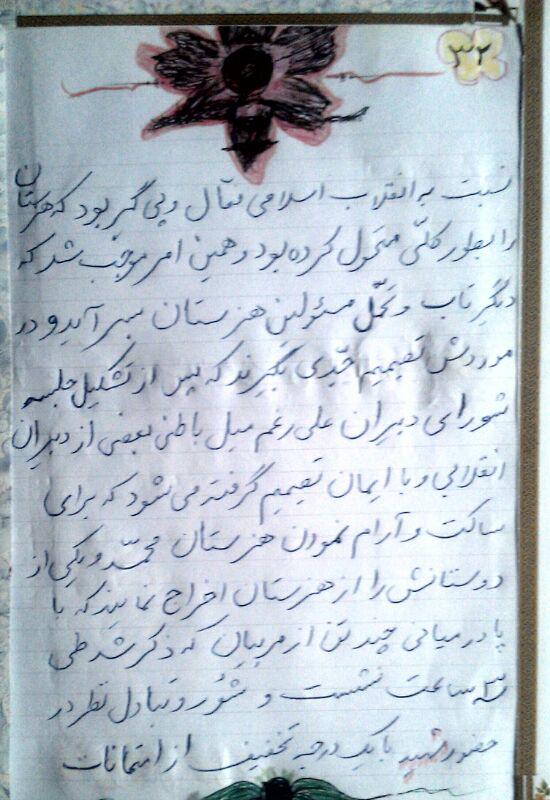 ۳۲
نسبت به انقلاب اسلامی فعّال و پی گیر بود که هنرستان
را بطور کلّی متحول کرده بود و همین امر موجب شد که
دیگر تاب و تحمّل مسئولین هنرستان بسر آید و در
موردش تصمیم جدّی بگیرند که پس از تشکیل جلسه
شورای دبیران علی رغم میل باطنی بعضی از دبیران
انقلابی و با ایمان تصمیم گرفته می شود که برای
ساکت و آرام نمودن هنرستان محمّد و یکی از
دوستانش را از هنرستان اخراج نمایند که با
پا در میانی چند تن از مربیان که ذکر شد طی
۳ ساعت نشست و شور و تبادل نظر در
حضور شهید با یک درجه تخفیف از امتحانات